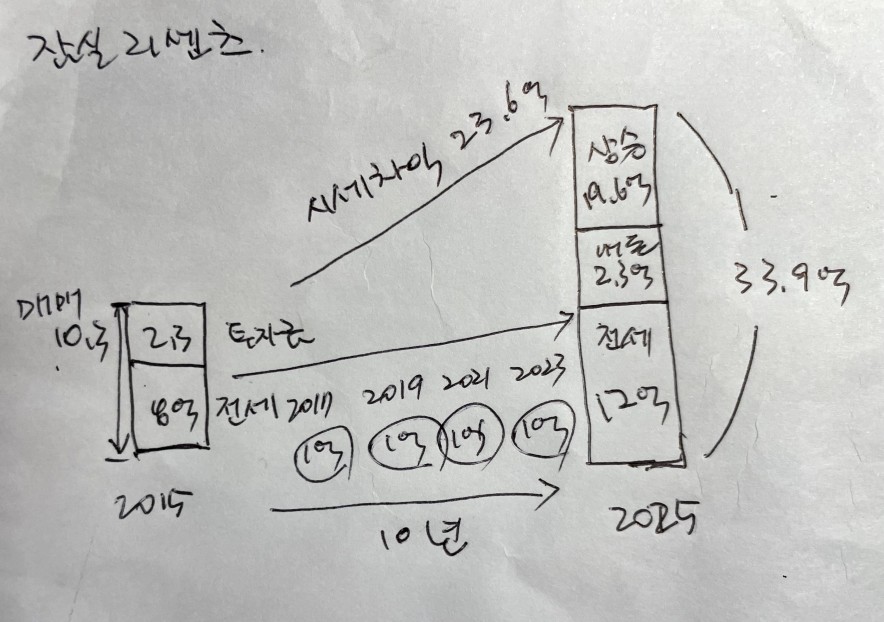 잠실 리센츠.
시세차익 23.6억
상승
19.6억
버튼
2.3억
33.9억
매매
10.3
2.3
투자금
전세
12억
8억
전세 2017 2019 2021 2023
1억 1억 1억 1억
2015
10년
2025